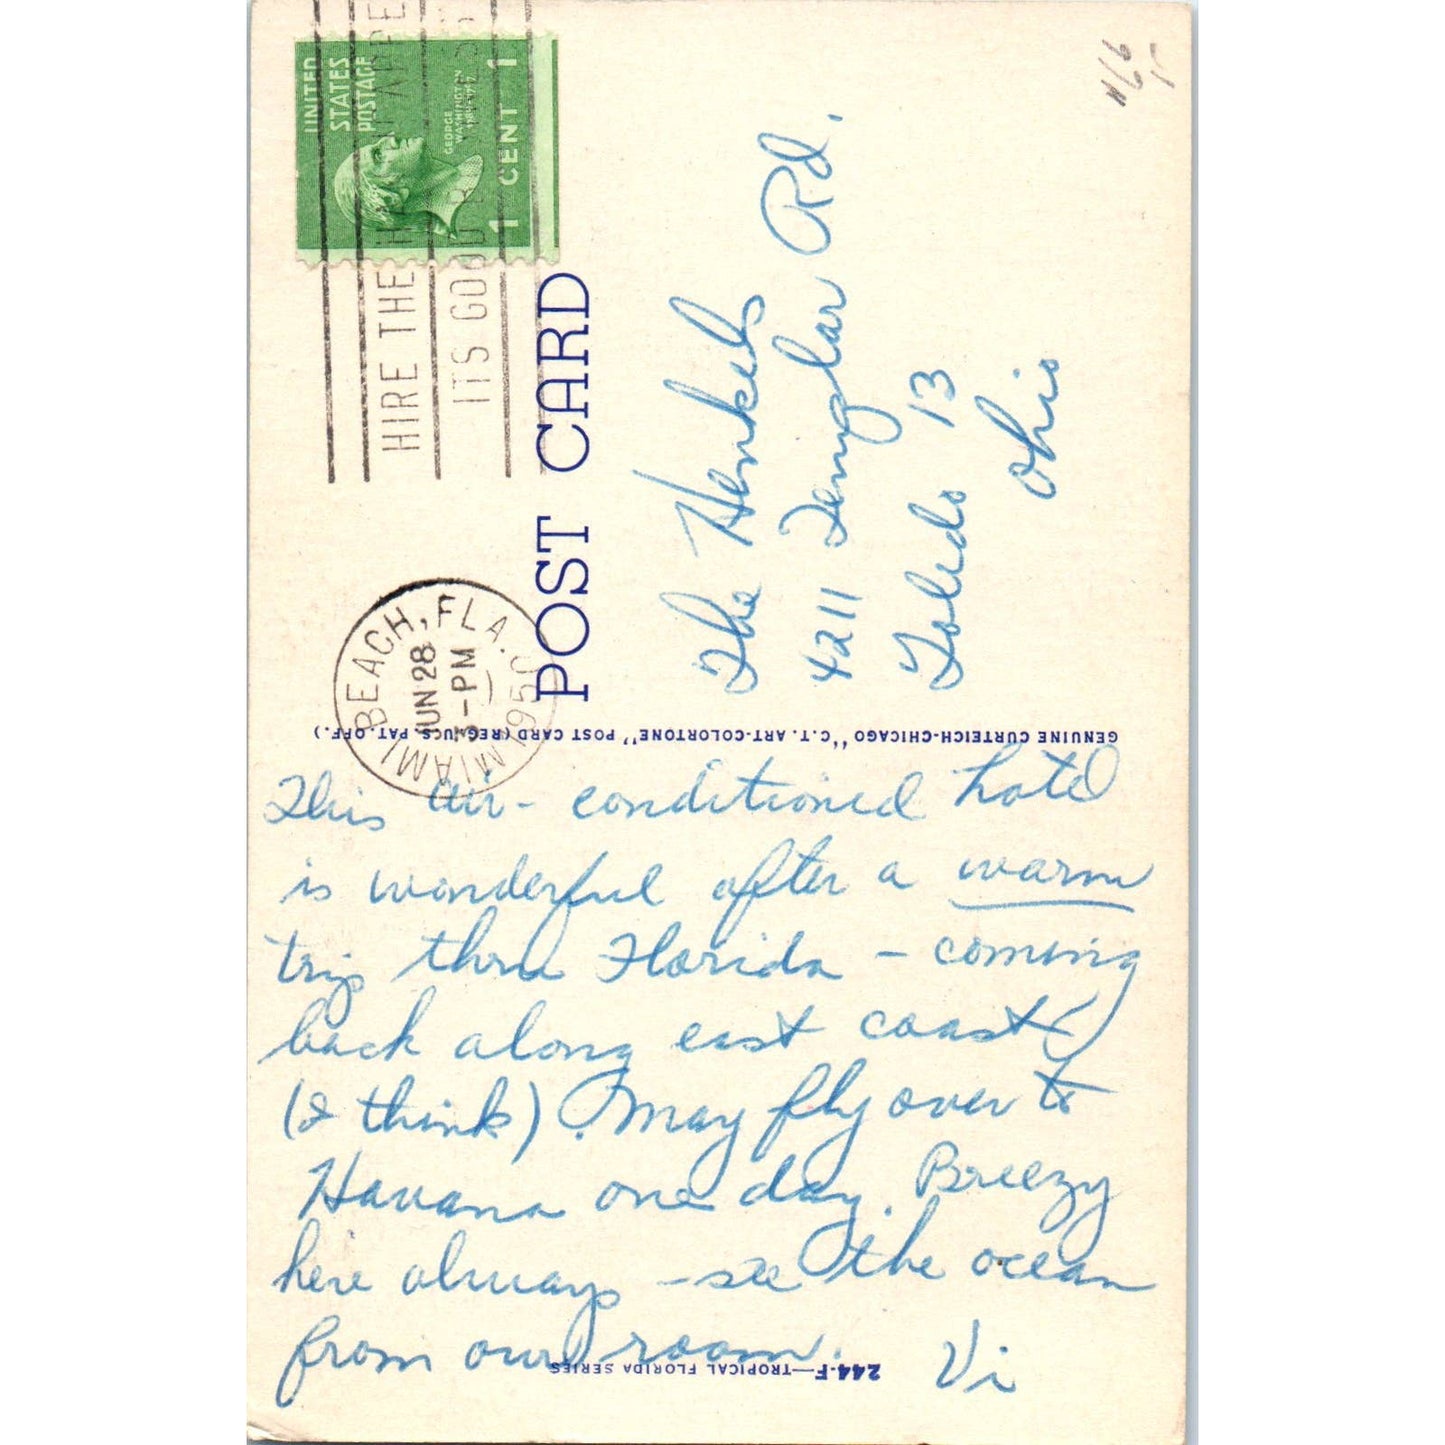 UNITED
STATES
POSTAGE
GEORGE
WASHINGTON
1 CENT 1
HIRE THE
ITS GOOD
MIAMI BEACH, FLA.
JUN 28
3-PM
1950
POST CARD
The Henkels
4211 Rd.
Toledo 13
Ohio
GENUINE CURTEICH-CHICAGO "C.T. ART-COLORTONE" POST CARD (REG. U.S. PAT. OFF.)
This air-conditioned hotel
is wonderful after a warm
trip thru Florida - coming
back along east coast
(I think). May fly over to
Havana one day. Breezy
here always - see the ocean
from our room. Vi
244-F—TROPICAL FLORIDA SERIES